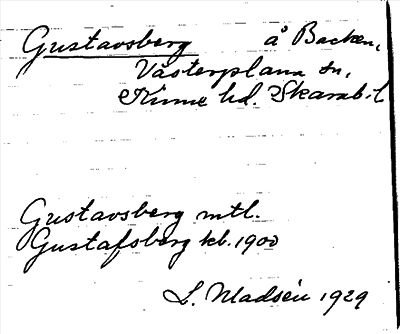 Gustavsberg å Backen,
Västerplana sn,
Kinne hd. Skarab. l
Gustavsberg mtl.
Gustafsberg kb. 1900
L. Madsén 1929